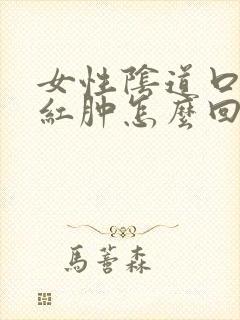 女性陰道口
紅肿怎麼回
馬蓍森